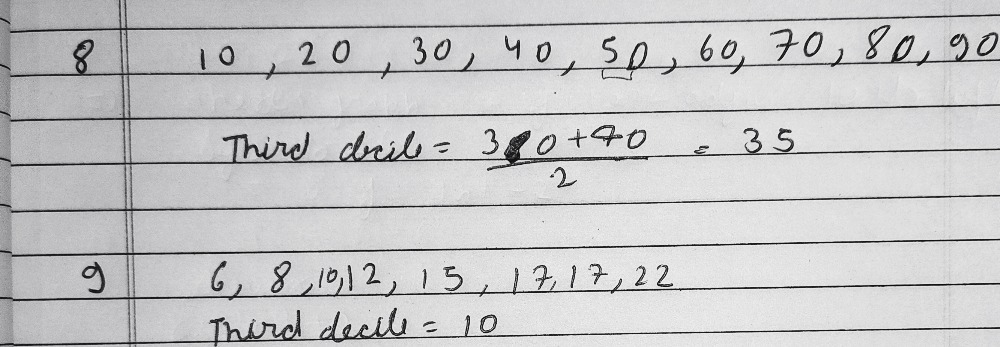 8 10, 20, 30, 40, 50, 60, 70, 80, 90
Third decile = 30+40 = 35
2
9 6, 8, 10, 12, 15, 17, 17, 22
Third decile = 10